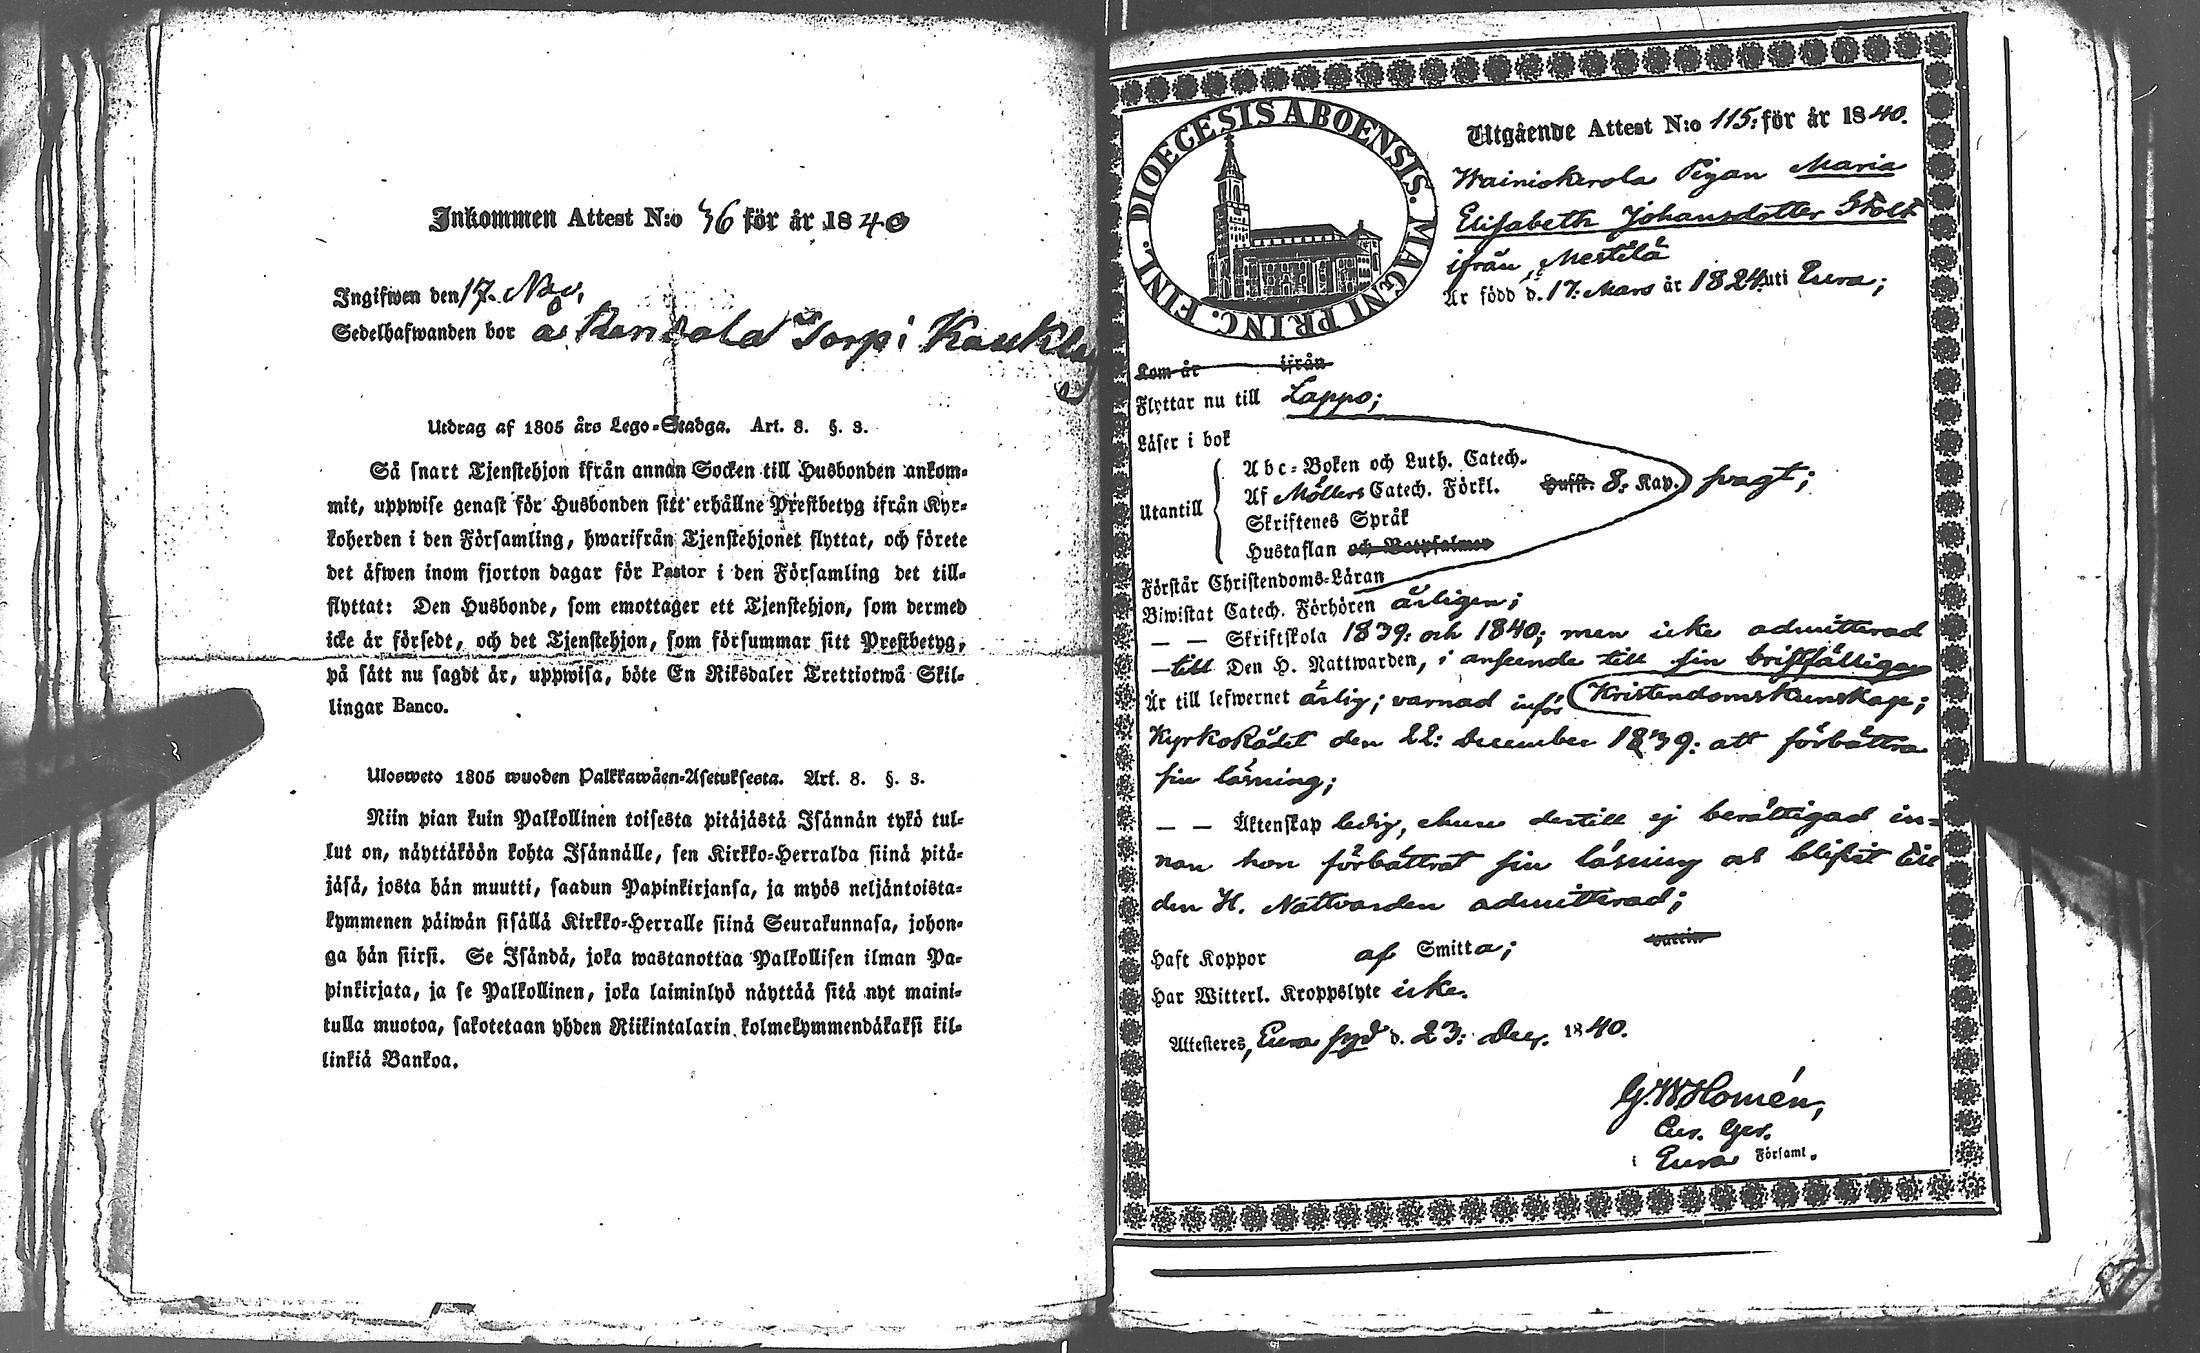 Inkommen Attest N:o 36 för år 1840
Ingifwen den 17. Nov.
Sedelhafwanden bor å Torp i
Utdrag af 1805 års Lego-Stadga. Art. 8. §. 3.
Så snart Tjenstehjon ifrån annan Socken till Husbonden ankom-
mit, uppwise genast för Husbonden sitt erhållne Prestbetyg ifrån Kyr-
koherden i den Församling, hwarifrån Tjenstehjonet flyttat, och förete
det äfwen inom fjorton dagar för Pastor i den Församling det till-
flyttat: Den Husbonde, som emottager ett Tjenstehjon, som dermed
icke är försedt, och det Tjenstehjon, som försummar sitt Prestbetyg,
på sätt nu sagdt är, uppwisa, böte En Riksdaler Trettiotwå Skil-
lingar Banco.
Ulosweto 1805 wuoden Palkkawäen-Asetuksesta. Art. 8. §. 3.
Niin pian kuin Palkollinen toisesta pitäjästä Isännän tykö tul-
lut on, näyttäköön kohta Isännälle, sen Kirkko-Herralda siinä pitä-
jäsä, josta hän muutti, saadun Papinkirjansa, ja myös neljäntoista-
kymmenen päiwän sisällä Kirkko-Herralle siinä Seurakunnasa, johon-
ga hän siirsi. Se Isändä, joka wastanottaa Palkollisen ilman Pa-
pinkirjata, ja se Palkollinen, joka laiminlyö näyttää sitä nyt maini-
tulla muotoa, sakotetaan yhden Riikintalarin kolmekymmendäkaksi kil-
linkiä Bankoa.
DIOECESIS ABOENSIS. MAGNI PRINC. FINL.
Utgående Attest N:o 115: för år 1840.
Pigan Maria
Elisabeth Johansdotter Stolt
ifrån Mestilä
Är född d. 17: Mars år 1824 uti Eura;
Kom år ifrån
Flyttar nu till Lappo;
Läser i bok
Abc-Boken och Luth. Catech.
Utantill
Af Möllers Catech. Förkl. Husst. 8: Kap. svagt;
Skriftenes Språk
Hustaflan och Botpsalmer
Förstår Christendoms-Läran
Biwistat Catech. Förhören årligen;
— — Skriftskola 1839: och 1840; men icke admitterad
— till Den H. Nattwarden, i anseende till sin bristfälliga
Är till lefwernet ärlig; varnad inför Kristendomskunskap;
KyrkoRådet den 22: December 1839: att förbättra
sin läsning;
— — Äktenskap ledig, ehuru dertill ej berättigad in-
nan hon förbättrat sin läsning och blifvit till
den H. Nattvarden admitterad;
Haft Koppor af Smitta; vaccin
Har Witterl. Kroppslyte icke.
Attesteres, Eura d. 23: 1840.
G. W. Homén,
i Eura Församl.